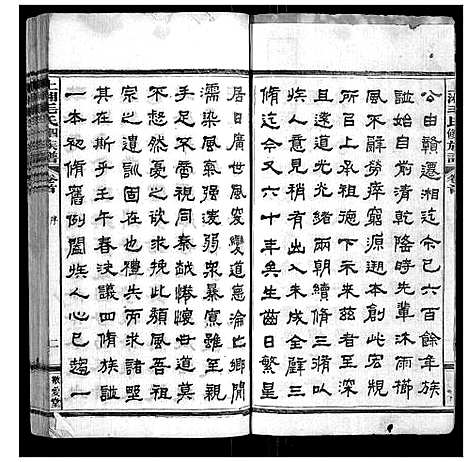 公由贛遷湘迄今已六百餘年族
誌始自前清乾隆時先輩沐雨櫛
風不辭勞瘁窮源遡本創此宏規
所召上承祖德下示來茲者至深
且遠道光緒兩朝續修三
族人意見稍有此咸全璧三
脩迄今又六十年矣生齒日繁星
居日廣世風變道悳淪亡鄉閭
濡染風氣強弱衆暴寡雖至
手足不異蔑視同秦越懷世道莫
不然憂之欲求挽此頹風吾祖
宗之遺訓固在也禮失而求諸野
其在斯乎壬午春決議四脩族誌
一本初修舊例闔族人心已趨一
上湘毛氏四族譜
卷首
序
二
敬愛堂